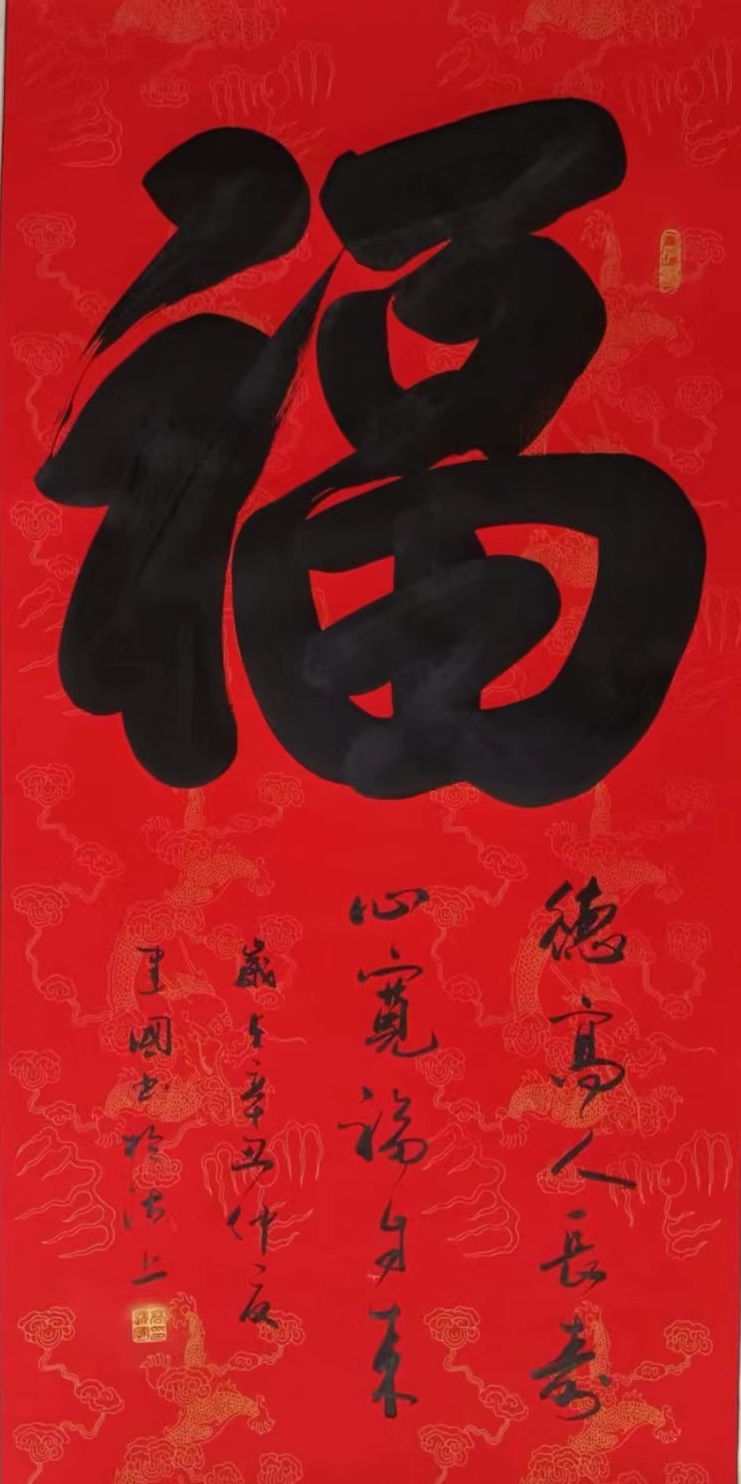 福
德高人長壽
心寬福自来
歲在辛丑仲夏
建國書於沽上